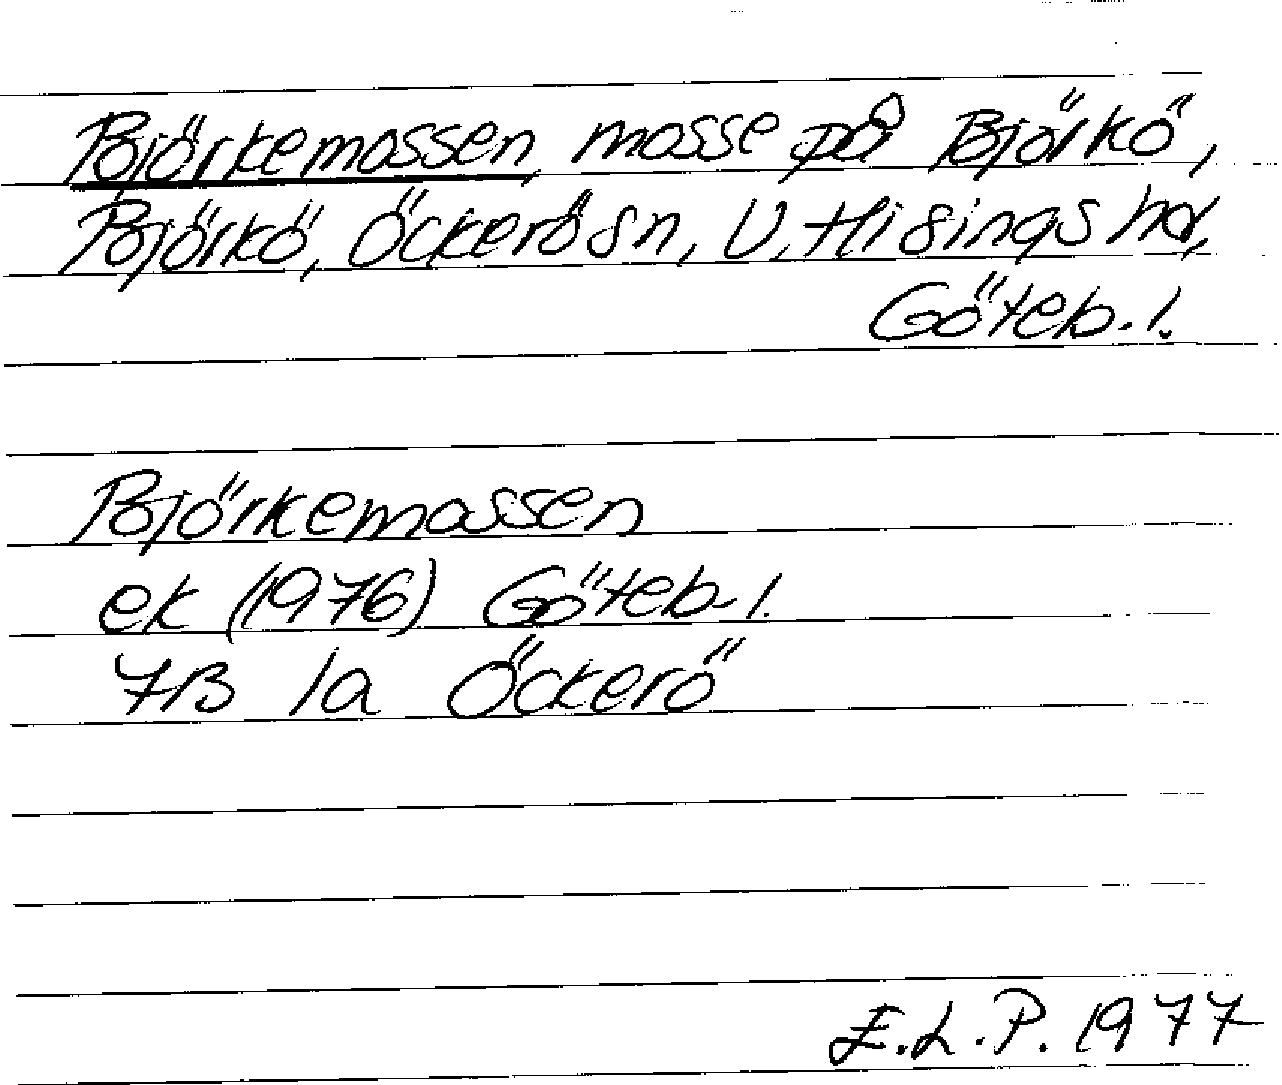 Björkemossen, mosse på Björkö,
Björkö, Öckerö sn, V. Hisings hd,
Göteb. l.
Björkemossen
ek (1976) Göteb. l.
7B 1a Öckerö
E.L.P. 1977